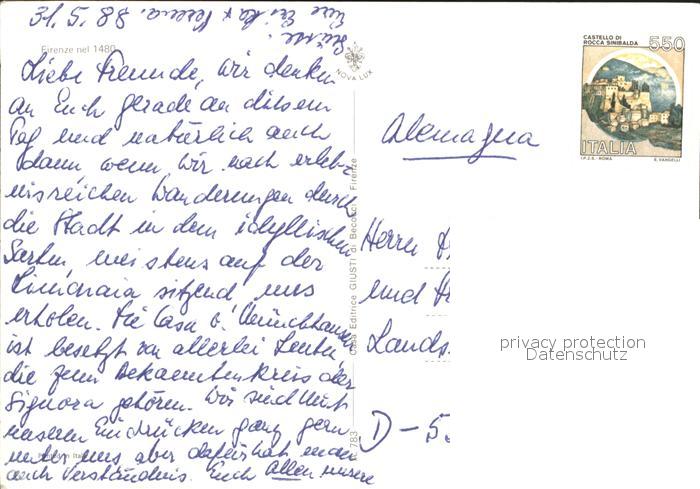 31.5.88 Eure
Grüße.
Firenze nel 1480
NOVA LUX
Liebe Freunde, wir denken
an Euch gerade an diesem
Tag und natürlich auch
dann wenn wir nach erleb-
nisreichen Wanderungen durch
die Stadt in dem idyllischen
Garten, meistens auf der
Limonaia sitzend, uns
erholen. Die Casa
ist besetzt von allerlei Leuten
die zum Bekanntenkreis der
Signora gehören. Wir sind mit
unseren Eindrücken ganz gern
unter uns aber dafür hat man
auch Verständnis. Euch Allen unsere
Printed in Italy
N. 783 Casa Editrice GIUSTI di Becocci Firenze
CASTELLO DI
ROCCA SINIBALDA
550
ITALIA
I.P.Z.S. - ROMA E. VANGELLI
Alemagna
Herrn
und
Lands
D - 5
privacy protection
Datenschutz